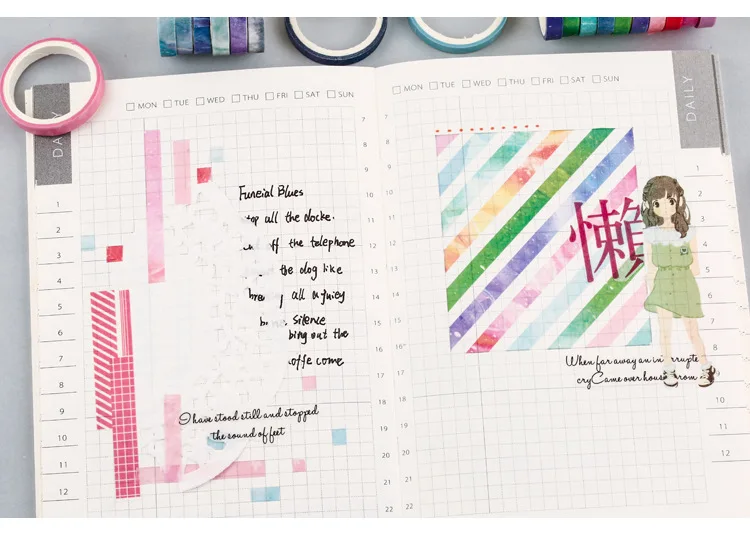 DAILY
MON TUE WED THU FRI SAT SUN
1
2
3
4
5
6
7
8
9
10
11
12
Funeial Blues
top all the clocke.
ff the telephone
the dog like
bre all a juiey
b silence
bing out the
offe come
I have stood still and stopped
the sound of feet
7
8
9
10
11
12
13
14
15
16
17
18
19
20
21
22
MON TUE WED THU FRI SAT SUN
DAILY
7
8
9
10
11
12
13
14
15
16
17
18
19
20
21
22
懶
When far away an in rrupte
cry Came over hous rom
1
2
3
4
5
6
7
8
9
10
11
12